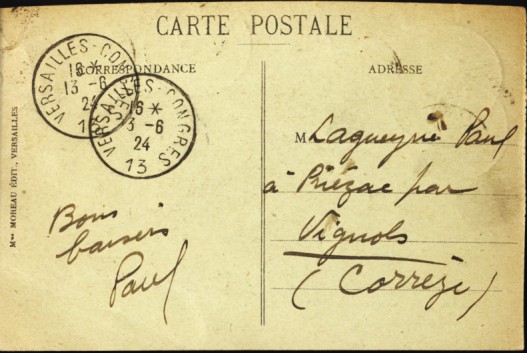 CARTE POSTALE
CORRESPONDANCE
ADRESSE
VERSAILLES-CONGRES
16 *
13 -6
24
13
VERSAILLES-CONGRES
16 *
13 -6
24
13
M Lagueyrie Paul
à Priézac par
Vignols
(Corrèze)
Bons
baisers
Paul
Mme MOREAU ÉDIT., VERSAILLES